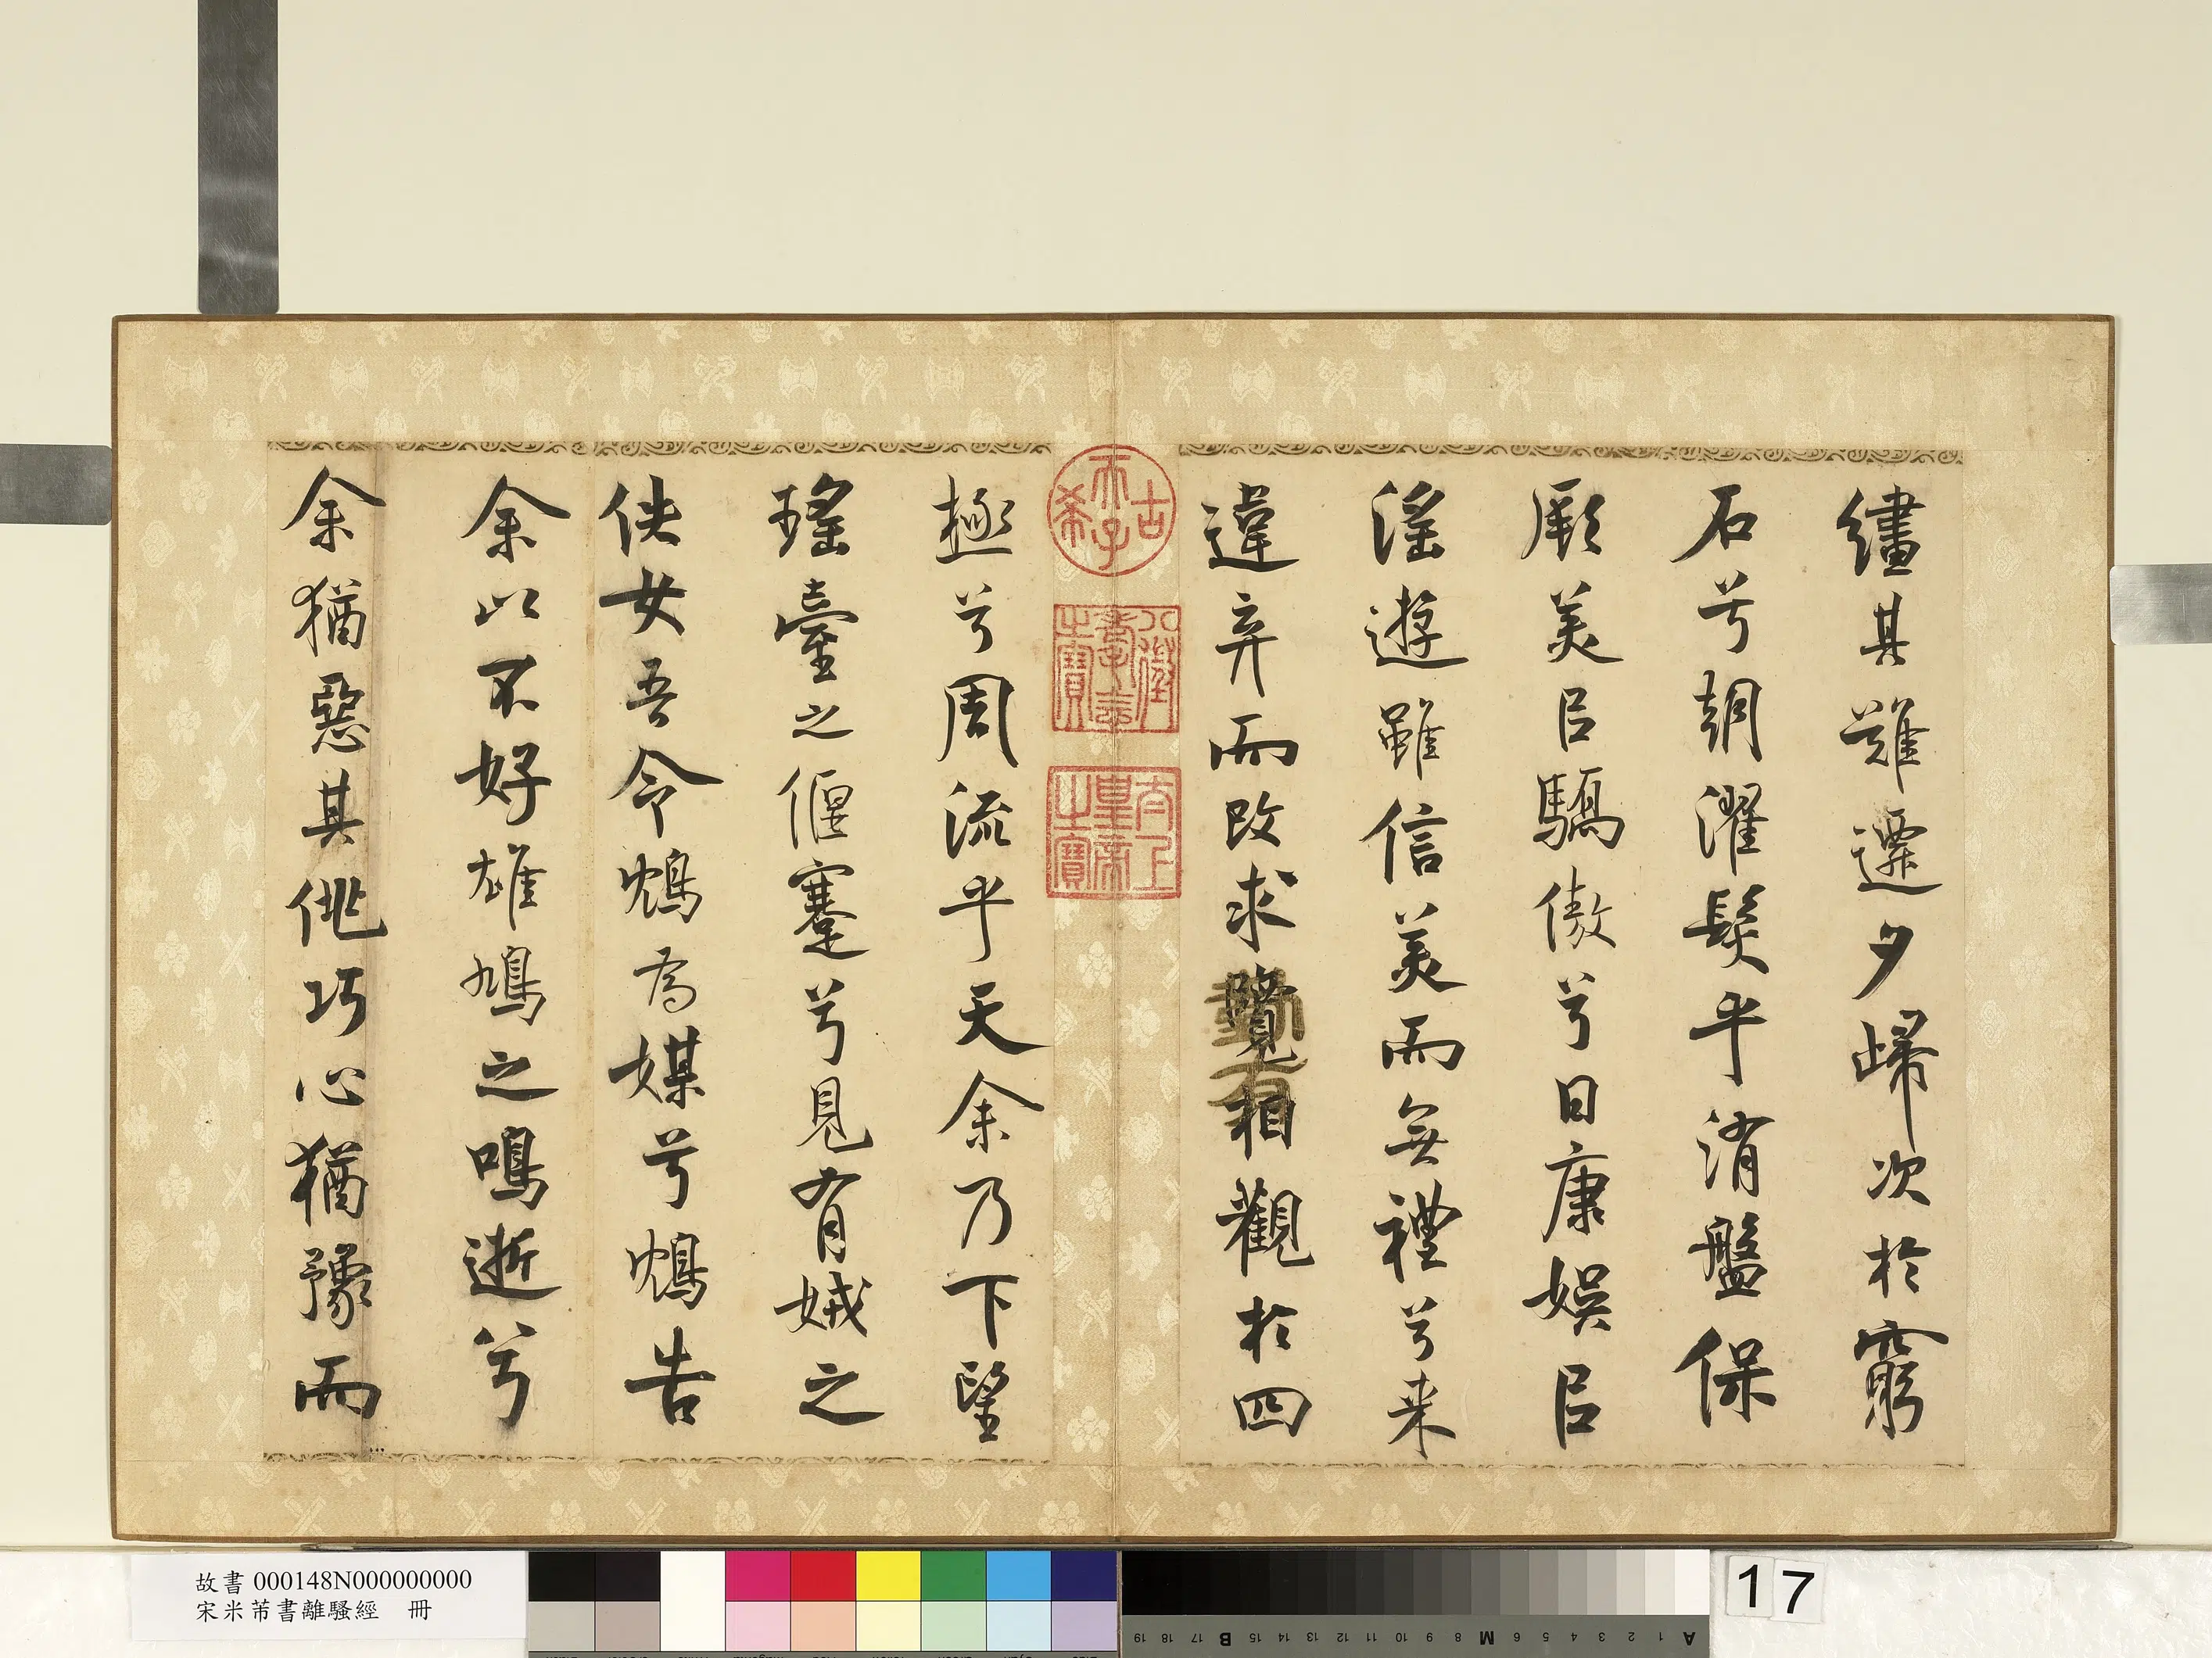 繣其難遷夕歸次於窮
石兮朝濯髮乎消盤保
厥美㠯驕傲兮日康娛㠯
淫遊雖信美而無禮兮来
違弃而改求覽相觀於四
古希天子
八徵耄念之寶
太上皇帝之寶
極兮周流乎天余乃下望
瑤臺之偃蹇兮見有娀之
佚女吾令鴆為媒兮鴆告
余以不好雄鳩之鳴逝兮
余猶惡其佻巧心猶豫而
故書 000148N000000000
宋米芾書離騷經 冊
19 18 17 B 16 15 14 13 12 11 10 9 8 M 7 6 5 4 3 2 1 A
17